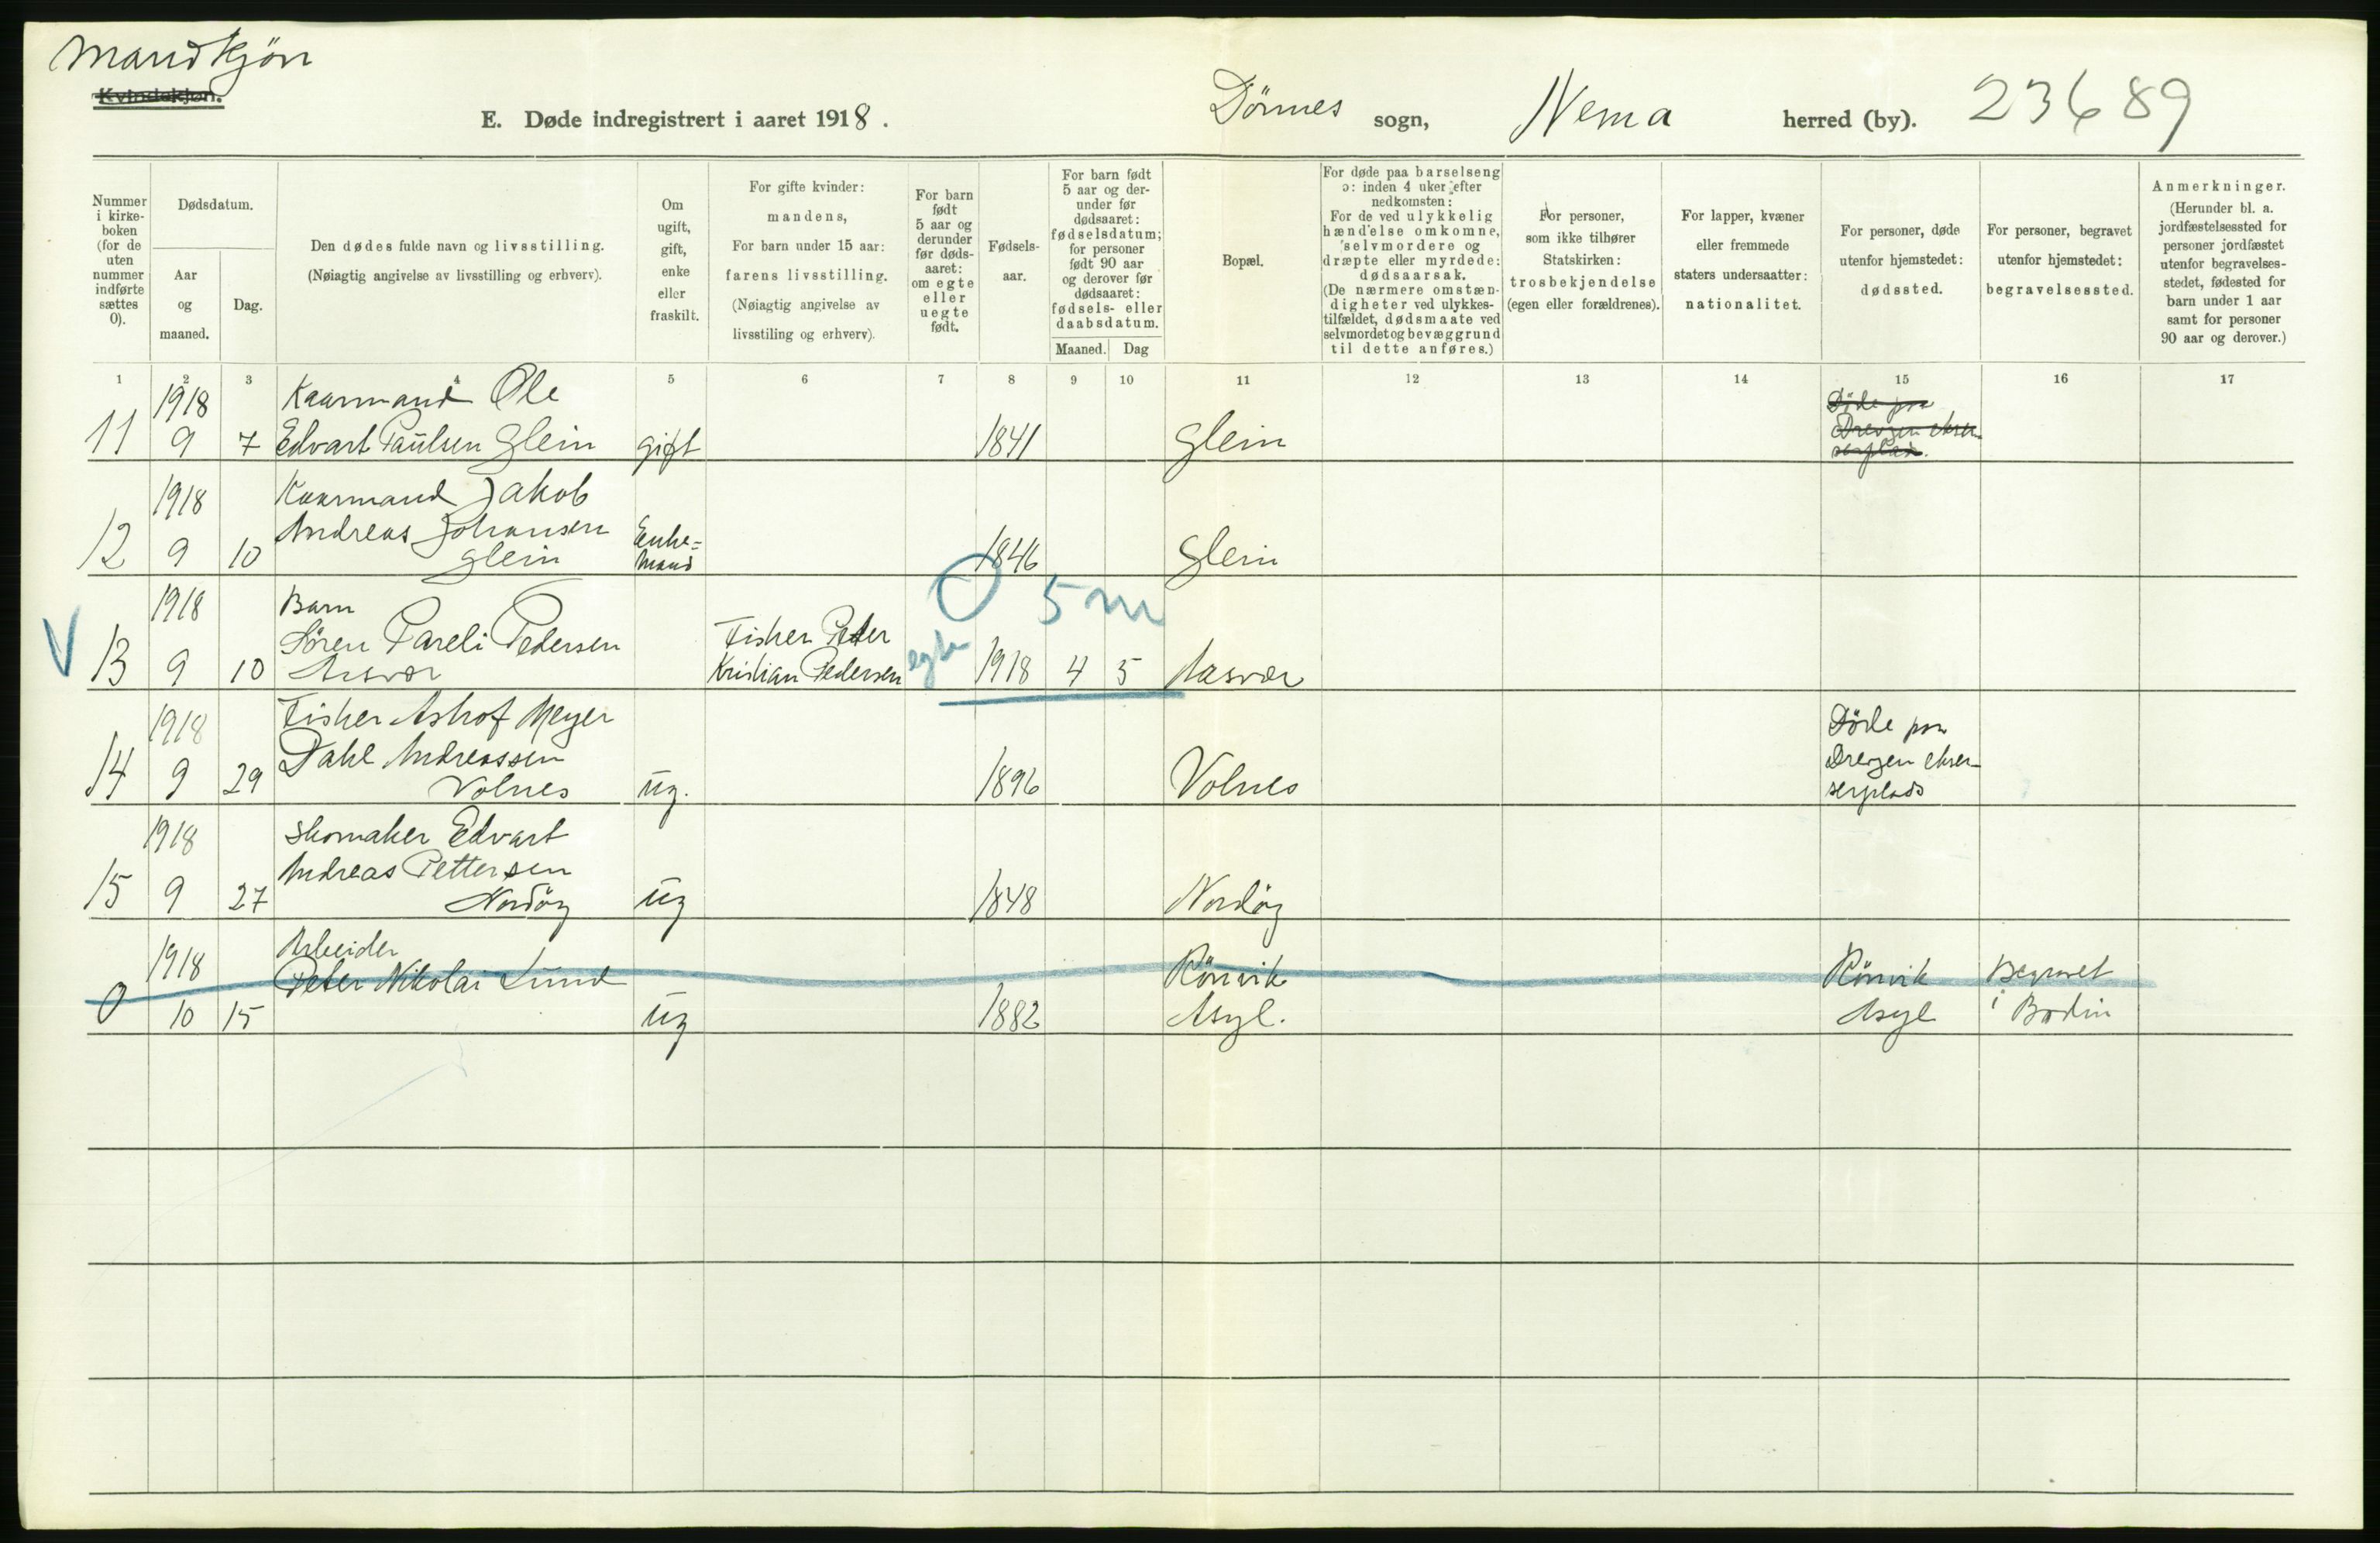 Mandkjön
Kvindekjøn.
E. Døde indregistrert i aaret 1918.
Dönnes sogn, Nesna herred (by). 23689
Nummer i kirke-boken (for de uten nummer indførte sættes 0).
Dødsdatum.
Aar og maaned.
Dag.
Den dødes fulde navn og livsstilling.
(Nøiagtig angivelse av livsstilling og erhverv).
Om ugift, gift, enke eller fraskilt.
For gifte kvinder:
mandens,
For barn under 15 aar:
farens livsstilling.
(Nøiagtig angivelse av
livsstiling og erhverv).
For barn født 5 aar og derunder før døds-aaret: om egte eller uegte født.
Fødsels-aar.
For barn født
5 aar og der-
under før
dødsaaret:
fødselsdatum;
for personer
født 90 aar
og derover før
dødsaaret:
fødsels- eller
daabsdatum.
Maaned. Dag
Bopæl.
For døde paa barselseng
ɔ: inden 4 uker efter
nedkomsten:
For de ved ulykkelig
hændelse omkomne,
selvmordere og
dræpte eller myrdede:
dødsaarsak.
(De nærmere omstæn-
digheter ved ulykkes-
tilfældet, dødsmaate ved
selvmordet og bevæggrund
til dette anføres.)
For personer,
som ikke tilhører
Statskirken:
trosbekjendelse
(egen eller forældrenes).
For lapper, kvæner
eller fremmede
staters undersaatter:
nationalitet.
For personer, døde
utenfor hjemstedet:
dødssted.
For personer, begravet
utenfor hjemstedet:
begravelsessted.
Anmerkninger.
(Herunder bl. a.
jordfæstelsessted for
personer jordfæstet
utenfor begravelses-
stedet, fødested for
barn under 1 aar
samt for personer
90 aar og derover.)
1 2 3 4 5 6 7 8 9 10 11 12 13 14 15 16 17
1918 Kaarmand Ole Döde paa
11 9 7 Edvart Paulsen Glein gift 1841 Glein Drevjen ekser-
serplads.
1918 Kaarmand Jakob
Andreas Johansen Enke-
12 9 10 Glein mand 1846 Glein
1918 Barn 5 m
Sören Pareli Pedersen Fisker Peter egte
V 13 9 10 Aasvær Kristian Pedersen 1918 4 5 Aasvær
1918 Fisker Astrof Meyer Döde paa
Dahl Andreassen Drevjen ekser-
14 9 29 Volnes ug. 1896 Volnes serplads
1918 Skomaker Edvart
Andreas Pettersen
15 9 27 Nordöy ug 1848 Nordöy
1918 Arbeider
Peter Nikolai Lund Rönvik Rönvik Begravet
0 10 15 ug 1882 Asyl. Asyl i Bodin